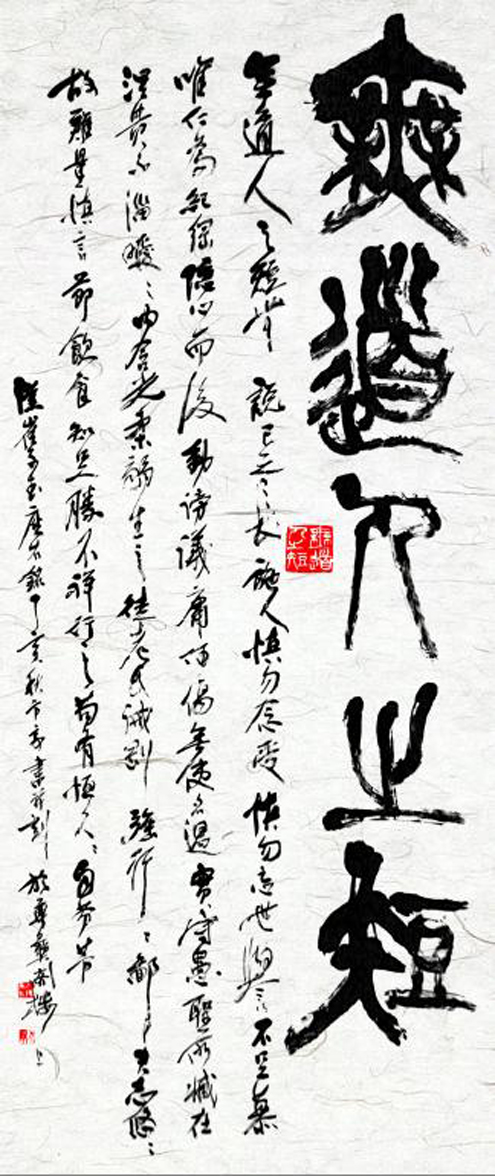 無道人之短
無道人之短無說己之長施人慎勿念受慎勿忘世譽不足慕
唯仁為紀綱隱心而後動謗議庸何傷無使名過實守愚聖所臧在
涅貴不淄曖〻內含光柔弱生之徒老氏誡剛強行〻鄙夫志悠〻
故難量慎言節飲食知足勝不祥行之苟有恒久〻自芬芳
漢崔子玉座右銘丁亥秋